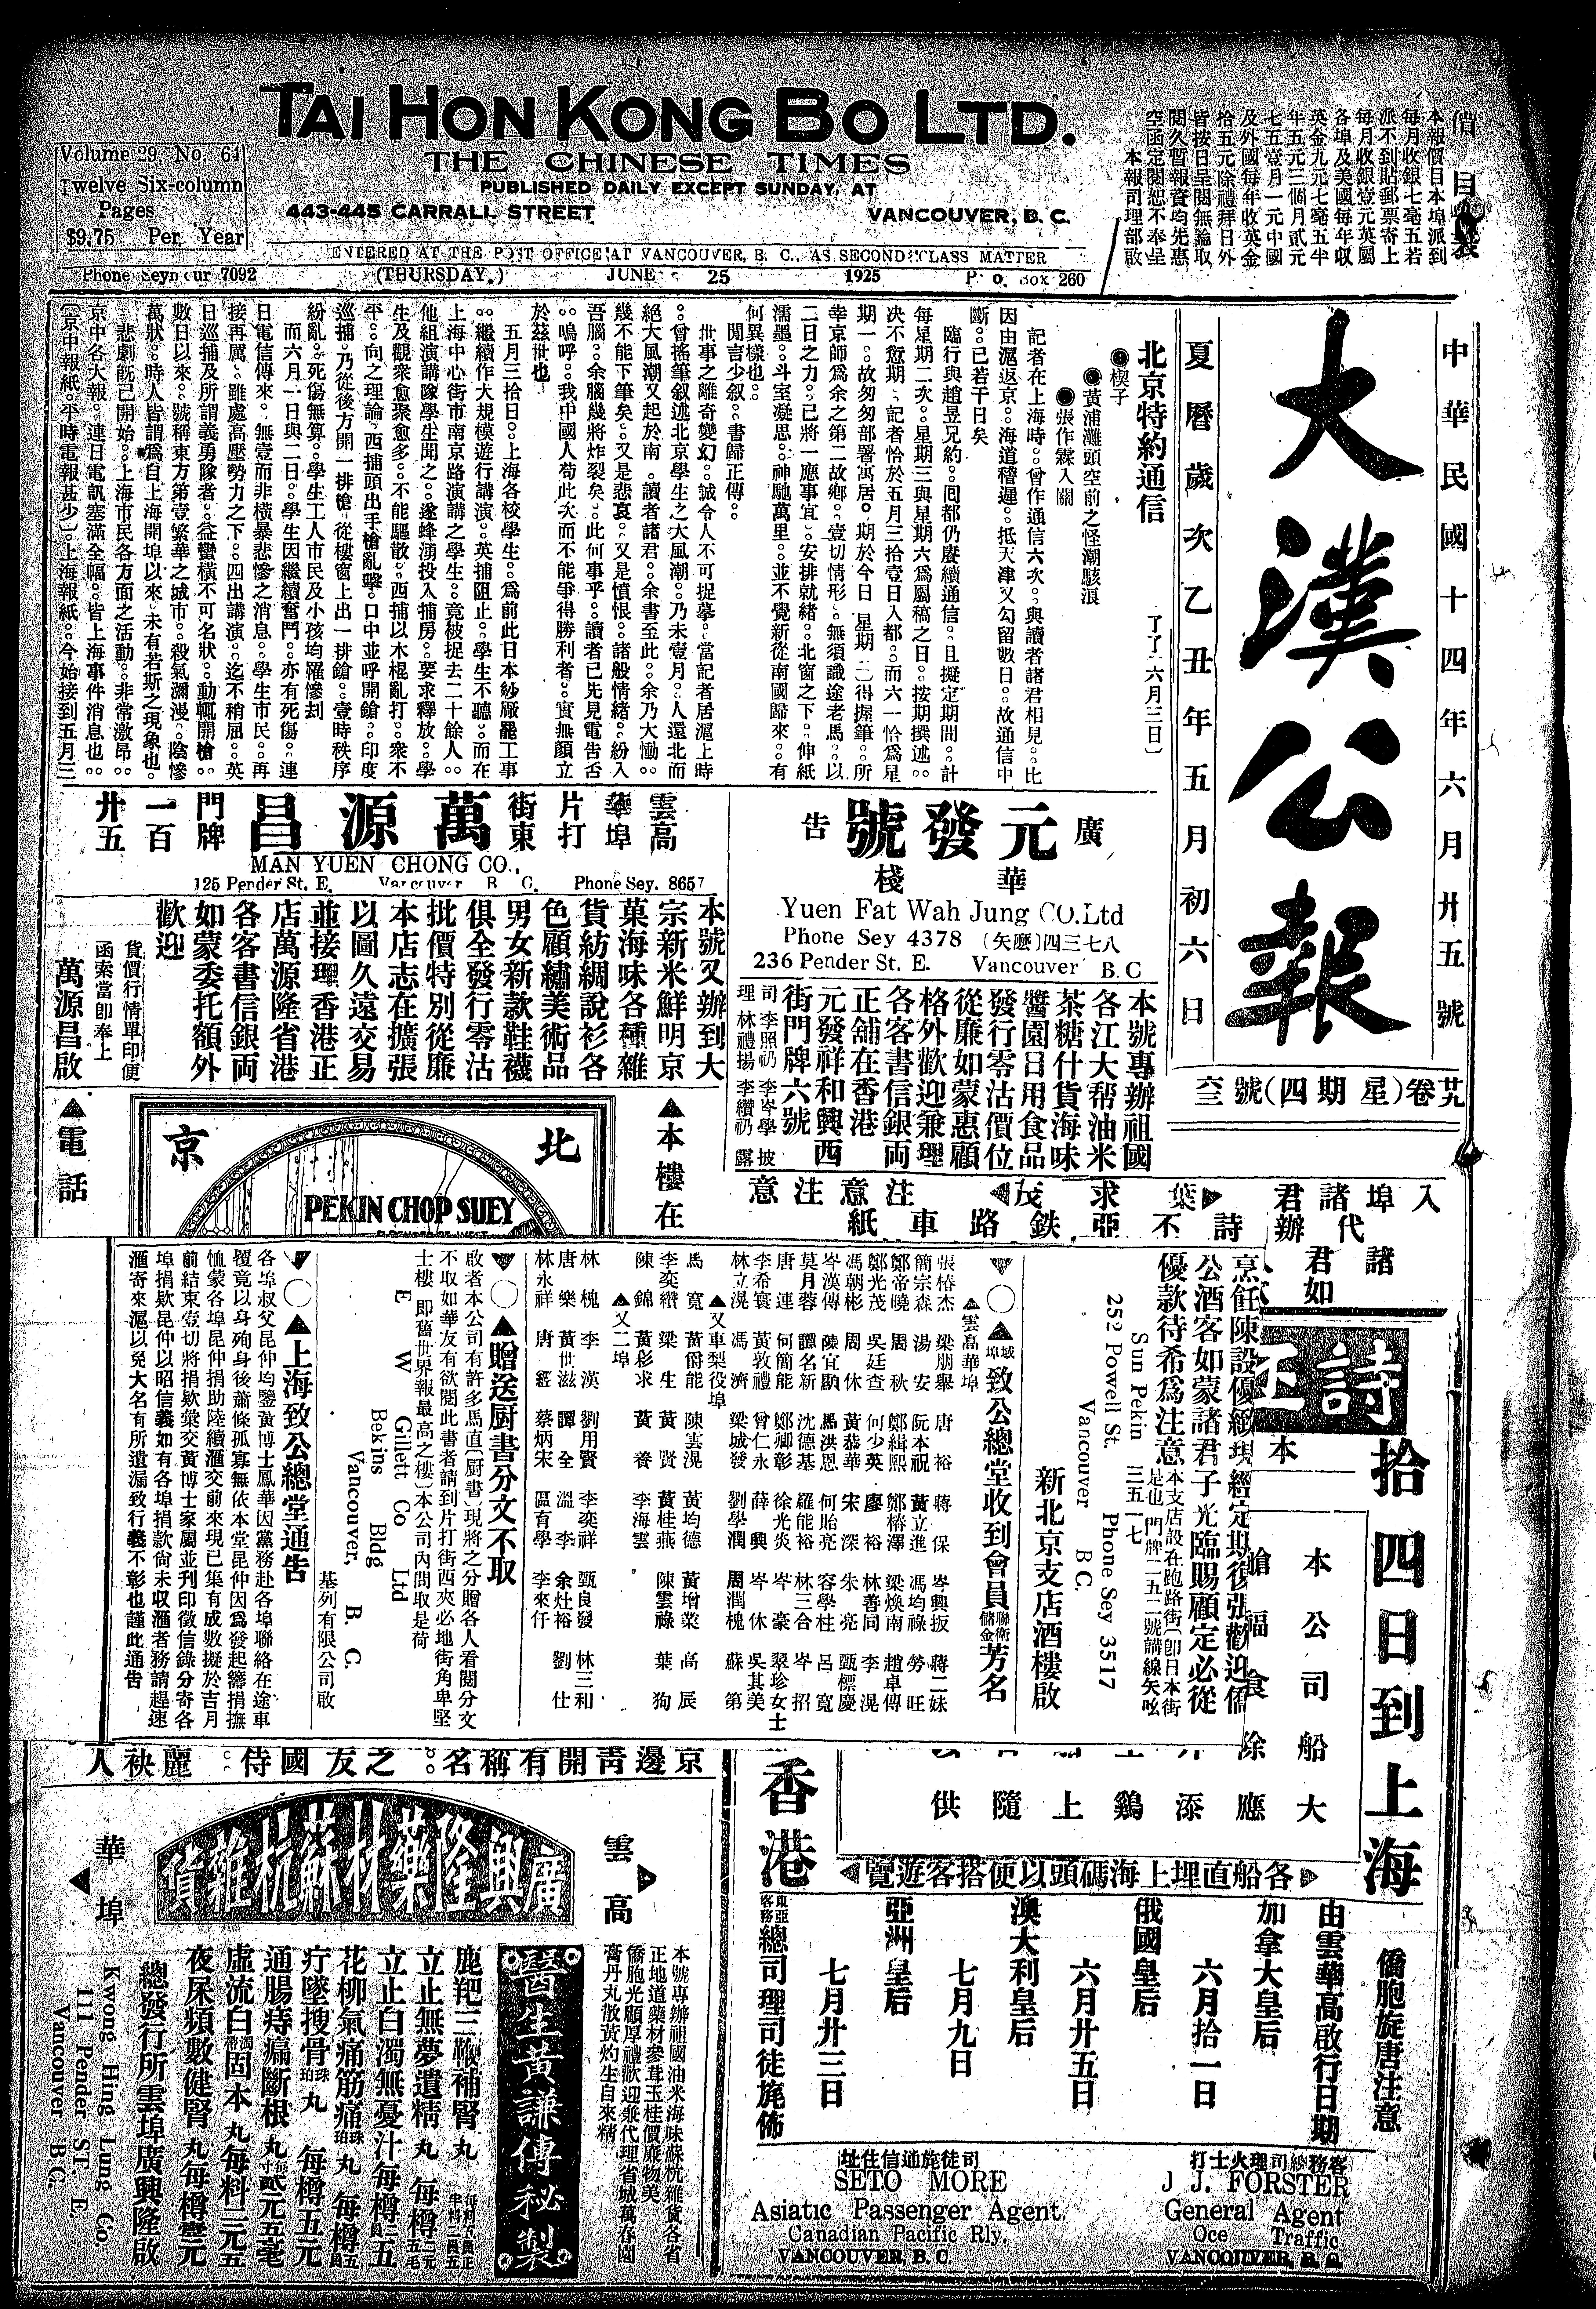 TAI HON KONG BO LTD.
THE CHINESE TIMES
PUBLISHED DAILY EXCEPT SUNDAY, AT
443-445 CARRALL STREET VANCOUVER, B. C.
ENTERED AT THE POST OFFICE AT VANCOUVER, B. C., AS SECOND CLASS MATTER
Volume 29, No. 64
Twelve Six-column
Pages
$9.75 Per Year
Phone Seymour 7092 (THURSDAY.) JUNE 25 1925 P. O. Box 260
價目表
本報價目本埠派到
每月收銀七毫五若
派不到貼郵票寄上
每月收銀壹元英屬
各埠及美國每年收
英金九元七毫五半
年五元三個月貳元
七五壹月一元中國
及外國每年收英金
拾五元除禮拜日外
皆按日呈閱無論取
閱久暫報資均先惠
空函定閱恕不奉呈
本報司理部啟
中華民國十四年六月廿五號
大漢公報
夏曆歲次乙丑年五月初六日
北京特約通信
了了 六月三日)
●楔子
●黃浦灘頭空前之怪潮駭浪
●張作霖入關
記者在上海時。曾作通信六次。與讀者諸君相見。比
因由滬返京。海道稽遲。抵天津又勾留數日。故通信中
斷。已若干日矣
臨行與趙昱兄約。囘都仍賡續通信。且擬定期間。計
每星期二次。星期三與星期六爲屬稿之日。按期撰述。
決不愆期。記者恰於五月三拾壹日入都。而六一恰爲星
期一。故匆匆部署寓居。期於今日 星期 二得握筆。所
幸京師爲余之第二故鄉。壹切情形。無須識途老馬。以
二日之力。已將一應事宜。安排就緒。北窗之下。伸紙
濡墨。斗室凝思。神馳萬里。並不覺新從南國歸來。有
何異樣也。
閒言少叙。書歸正傳。
世事之離奇變幻。誠令人不可捉摹。當記者居滬上時
。曾搖筆叙述北京學生之大風潮。乃未壹月。人還北而
絕大風潮又起於南。讀者諸君。余書至此。余乃大慟。
幾不能下筆矣。又是悲哀。又是憤恨。諸般情緒。紛入
吾腦。余腦幾將炸裂矣。此何事乎。讀者已先見電告否
。嗚呼。我中國人苟此次而不能爭得勝利者。實無顏立
於茲世也
五月三拾日。上海各校學生。爲前此日本紗廠罷工事
。繼續作大規模遊行講演。英捕阻止。學生不聽。而在
上海中心街市南京路演講之學生。竟被捉去二十餘人。
他組演講隊學生聞之。遂蜂湧投入捕房。要求釋放。學
生及觀衆愈聚愈多。不能驅散。西捕以木棍亂打。衆不
平。向之理論。西捕頭出手槍亂擊。口中並呼開鎗。印度
巡捕。乃從後方開一排槍。從樓窗上出一排鎗。壹時秩序
紛亂。死傷無算。學生工人市民及小孩均罹慘刦
而六月一日與二日。學生因繼續奮鬥。亦有死傷。連
日電信傳來。無壹而非橫暴悲慘之消息。學生市民。再
接再厲。雖處高壓勢力之下。四出講演。迄不稍屈。英
日巡捕及所謂義勇隊者。益蠻橫不可名狀。動輒開槍。
數日以來。號稱東方第壹繁華之城市。殺氣瀰漫。陰慘
萬狀。時人皆謂爲自上海開埠以來。未有若斯之現象也。
悲劇旣已開始。上海市民各方面之活動。非常激昂。
京中各大報。連日電訊塞滿全幅。皆上海事件消息也。
(京中報紙。平時電報甚少)。上海報紙。今始接到五月三
廿九卷(星期四)號空三
雲高華埠片打街東 萬源昌 門牌一百廿五
MAN YUEN CHONG CO.,
125 Pender St. E. Vancouver B. C. Phone Sey. 8657
本號又辦到大
宗新米鮮明京
菓海味各種雜
貨紡綢說衫各
色顧繡美術品
男女新款鞋襪
俱全發行零沽
批價特別從廉
本店志在擴張
以圖久遠交易
並接理香港正
店萬源隆省港
各客書信銀両
如蒙委托額外
歡迎
貨價行情單印便
函索當卽奉上
萬源昌啟
廣告
元發號
華棧
Yuen Fat Wah Jung CO.Ltd
Phone Sey 4378 (矢麽)四三七八
236 Pender St. E. Vancouver B.C
本號專辦祖國
各江大帮油米
茶糖什貨海味
醬園日用食品
發行零沽價位
從廉如蒙惠顧
格外歡迎兼理
各客書信銀両
正舖在香港
元發祥和興西
街門牌六號
司理 李照礽 李岑學披
林禮揚 李纘礽露
▲電話
北京
PEKIN CHOP SUEY
▲本樓在
入埠諸君
葉求茂
注意注意
代辦
詩丕亞鉄路車紙
諸君如
烹飪陳設優緻現經定期復張歡迎僑
公酒客如蒙諸君子光臨賜顧定必從
優款待希爲注意
本支店設在跑路街(卽日本街
是也)門牌二五二號講線矢咗
三五一七
Sun Pekin
252 Powell St. Phone Sey 3517
Vancouver B C.
新北京支店酒樓啟
▼〇▲域埠致公總堂收到會員聯衛儲金芳名
▲雲高華埠
張椿杰 梁朋舉 唐裕 蔣保 岑興扳 蔣二妹
簡宗森 湯安 阮本祝 黃立進 馮均祿 勞旺
鄭帝曉 周秋 鄭緝熙 鄭椿澤 梁煥南 趙卓傳
鄭光茂 吳廷查 何少英 廖裕 林善同 李滉
馮朝彬 周休 黃恭華 宋深 朱亮 甄標慶
岑漢傳 陳宜勳 馬洪恩 何貽亮 容學柱 呂寬
莫月蓉 譚名新 沈德基 羅能裕 林三合 岑招
唐連 何簡能 鄭卿彰 徐光炎 岑豪 翠珍女士
李希寰 黃敦禮 曾仁永 薛興 岑休 吳其美
林立滉 馮濟 梁城發 劉學潤 周潤槐 蘇第
▲又車梨役埠
馬寬 黃爵能 陳雲滉 黃均德 黃增業 高辰
李奕纘 梁生 黃賢 黃桂燕 陳雲祿 葉狗
陳錦 黃杉求 黃養 李海雲
▲又二埠
林槐 李漢 劉用賢 李奕祥 甄良發 林三和
唐樂 黃世滋 譚全 溫李 余灶裕 劉仕
林永祥 唐經 蔡炳宋 區育學 李來仟
▼〇▲贈送厨書分文不取
啟者本公司有許多馬直(厨書)現將之分贈各人看閱分文
不取如華友有欲閱此書者請到片打街西夾必地街角卑堅
士樓(即舊世界報最高之樓)本公司內間取是荷
E W Gillett Co Ltd
Bekins Bldg
Vancouver, B. C.
基列有限公司啟
▼〇▲上海致公總堂通告
各埠叔父昆仲均鑒黃博士鳳華因黨務赴各埠聯絡在途車
覆竟以身殉身後蕭條孤寡無依本堂昆仲因爲發起籌捐撫
恤蒙各埠昆仲捐助陸續滙交前來現已集有成數擬於吉月
前結束壹切將捐欵彙交黃博士家屬並刋印徵信錄分寄各
埠捐欵昆仲以昭信義如有各埠捐款尙未收滙者務請趕速
滙寄來滬以免大名有所遺漏致行義不彰也謹此通告
京邊靑開有稱名。之友國侍。麗袂人
雲高華埠
廣興隆藥材蘇杭雜貨
本號專辦祖國油米海味蘇杭雜貨各省
正地道藥材參茸玉桂價廉物美
僑胞光顧厚禮歡迎兼代理省城萬春園
膏丹丸散黃灼生自來精
醫生黃謙傳秘製
鹿羓三鞭補腎丸
立止無夢遺精丸 每樽二元五毛
立止白濁無憂汁每樽二員五
花柳氣痛筋痛珠珀丸 每樽五員
疔墜搜骨珠珀丸 每樽五元
通腸痔痛斷根丸 貳元五毫
虛流白濁帶固本丸每料三元五
夜尿頻數健腎丸每樽壹元
總發行所雲埠廣興隆啟
Kwong Hing Lung Co.
111 Pender ST. E.
Vancouver B.C.
拾四日到上海
香港
本公司船大
各船直埋上海碼頭以便搭客遊覽
僑胞旋唐注意
由雲華高啟行日期
加拿大皇后
六月拾一日
俄國皇后
六月廿五日
澳大利皇后
七月九日
亞洲皇后
七月廿三日
東亞客務總司理司徒旄佈
司徒旄通信住址
SETO MORE
Asiatic Passenger Agent.
Canadian Pacific Rly.
VANCOUVER, B. C.
客務總司理火士打
J. J. FORSTER
General Agent
Oce Traffic
VANCOUVER, B. C.